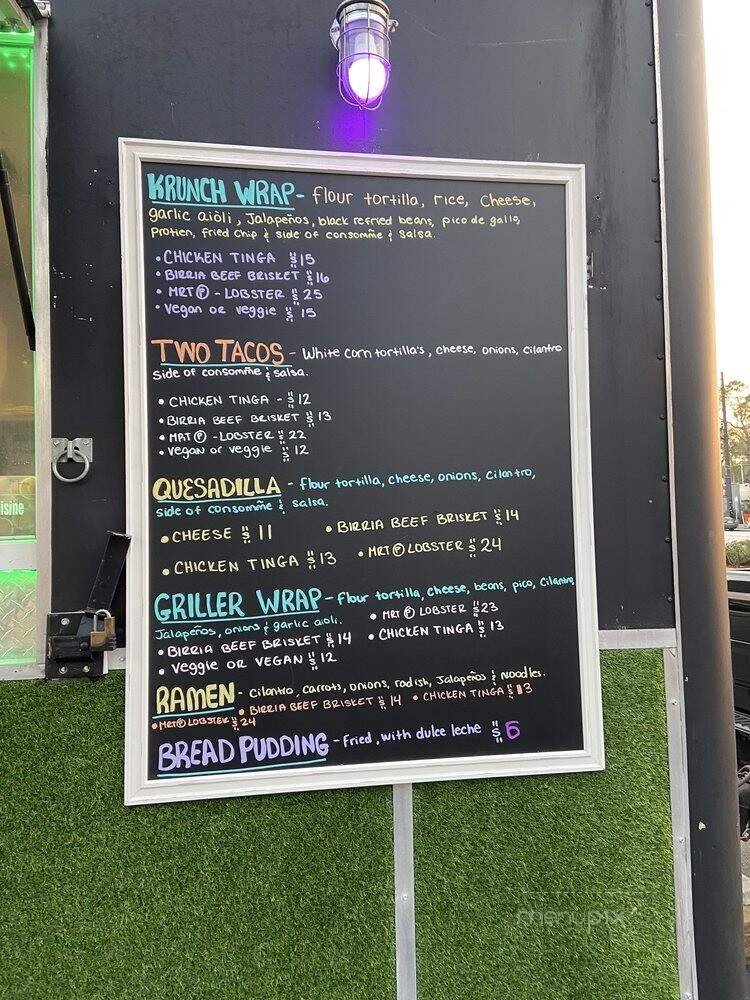 KRUNCH WRAP - flour tortilla, rice, cheese,
garlic aioli, Jalapeños, black refried beans, pico de gallo,
Protien, fried chip & side of consomme & salsa.
• CHICKEN TINGA $15
• BIRRIA BEEF BRISKET $16
• MRT Ⓕ - LOBSTER $25
• Vegan or veggie $15
TWO TACOS - White corn tortilla's, cheese, onions, cilantro
side of consomme & salsa.
• CHICKEN TINGA - $12
• BIRRIA BEEF BRISKET $13
• MRT Ⓕ - LOBSTER $22
• Vegan or veggie $12
QUESADILLA - flour tortilla, cheese, onions, cilantro,
side of consomme & salsa.
• CHEESE $11 • BIRRIA BEEF BRISKET $14
• CHICKEN TINGA $13 • MRT Ⓕ LOBSTER $24
GRILLER WRAP - flour tortilla, cheese, beans, pico, cilantro,
Jalapeños, onions & garlic aioli. • MRT Ⓕ LOBSTER $23
• BIRRIA BEEF BRISKET $14 • CHICKEN TINGA $13
• Veggie OR VEGAN $12
RAMEN - Cilantro, carrots, onions, radish, Jalapeños & noodles.
• MRT Ⓕ LOBSTER $24 • BIRRIA BEEF BRISKET $14 • CHICKEN TINGA $13
BREAD PUDDING - fried, with dulce leche $5
isine
menupix